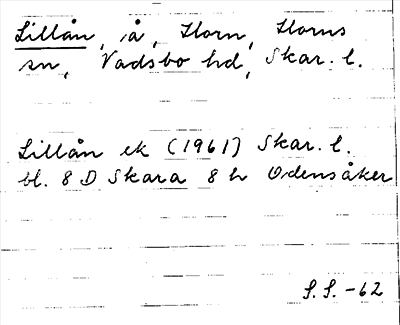 Lillån, å, Horn, Horns
sn, Vadsbo hd, Skar. l.
Lillån ek (1961) Skar. l.
bl. 8 D Skara 8 h Odensåker
S.S. -62